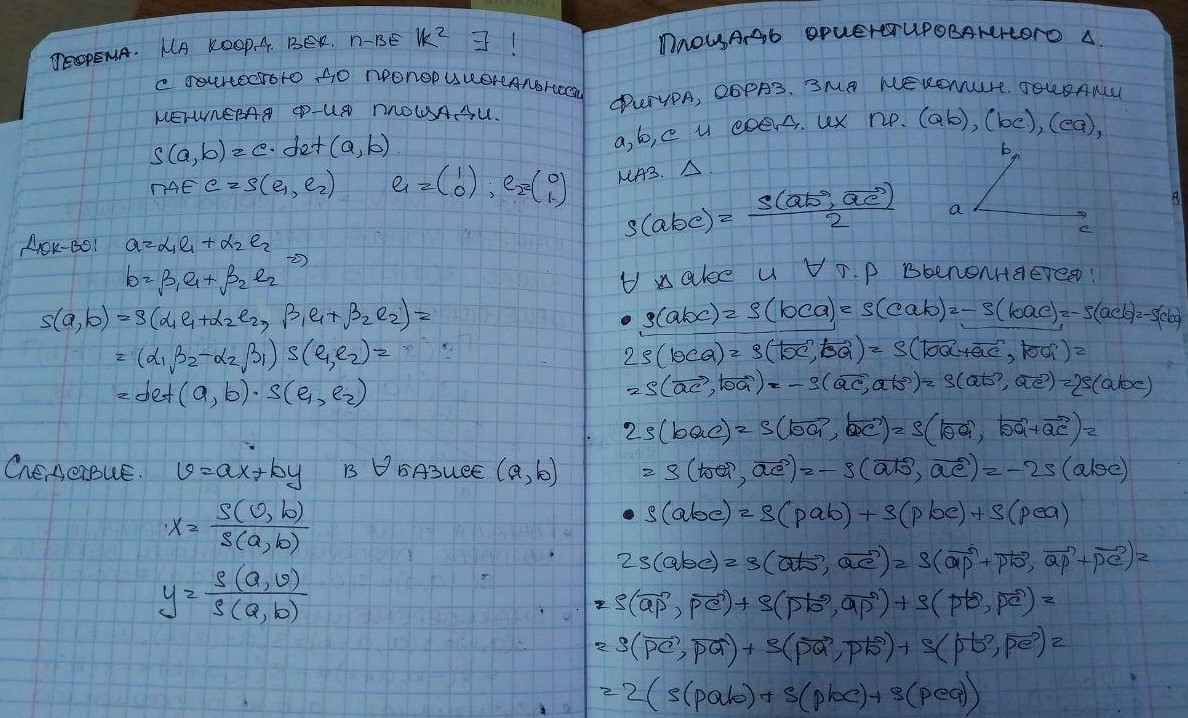 ТЕОРЕМА. НА КООРД. ВЕК. П-ВЕ 𝕂² ∃!
С ТОЧНОСТЬЮ ДО ПРОПОРЦИОНАЛЬНОСТИ
НЕНУЛЕВАЯ Ф-ИЯ ПЛОЩАДИ.
s(a,b)=c·det(a,b)
ГДЕ c=s(e₁,e₂) e₁=(1 0); e₂=(0 1)
ДОК-ВО: a=α₁e₁+α₂e₂
b=β₁e₁+β₂e₂ ⇒
s(a,b)=s(α₁e₁+α₂e₂, β₁e₁+β₂e₂)=
=(α₁β₂-α₂β₁) s(e₁,e₂)=
=det(a,b)·s(e₁,e₂)
СЛЕДСТВИЕ. v=ax+by В ∀ БАЗИСЕ (a,b)
x= s(v,b)/s(a,b)
y= s(a,v)/s(a,b)
ПЛОЩАДЬ ОРИЕНТИРОВАННОГО Δ.
ФИГУРА, ОБРАЗ. 3МЯ НЕКОЛЛИН. ТОЧКАМИ
a,b,c И СОЕД. ИХ ПР. (ab),(bc),(ca),
НАЗ. Δ.
b
a
c
s(abc)= s(ab⃗, ac⃗)/2
∀ Δabc И ∀ Т.P ВЫПОЛНЯЕТСЯ:
• s(abc)=s(bca)=s(cab)=-s(bac)=-s(acb)=-s(cba)
2s(bca)=s(bc⃗,ba⃗)=s(ba⃗+ac⃗,ba⃗)=
=s(ac⃗,ba⃗)=-s(ac⃗,ab⃗)=s(ab⃗,ac⃗)=2s(abc)
2s(bac)=s(ba⃗,bc⃗)=s(ba⃗, ba⃗+ac⃗)=
=s(ba⃗,ac⃗)=-s(ab⃗,ac⃗)=-2s(abc)
• s(abc)=s(pab)+s(pbc)+s(pca)
2s(abc)=s(ab⃗,ac⃗)=s(ap⃗+pb⃗, ap⃗+pc⃗)=
=s(ap⃗,pc⃗)+s(pb⃗,ap⃗)+s(pb⃗,pc⃗)=
=s(pc⃗,pa⃗)+s(pa⃗,pb⃗)+s(pb⃗,pc⃗)=
=2(s(pab)+s(pbc)+s(pca))